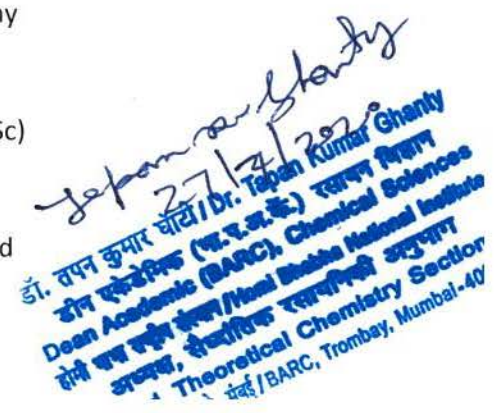 ay
Sc)
d
Tapan Kumar Ghanty
27/7/2020
डॉ. तपन कुमार घाँटी / Dr. Tapan Kumar Ghanty
डीन एकेडेमिक (भा.प.अ.कें.) रसायन विज्ञान
Dean Academic (BARC), Chemical Sciences
होमी भाभा राष्ट्रीय संस्थान / Homi Bhabha National Institute
अध्यक्ष, सैध्दांतिक रसायनिकी अनुभाग
Theoretical Chemistry Section
मुंबई / BARC, Trombay, Mumbai-40